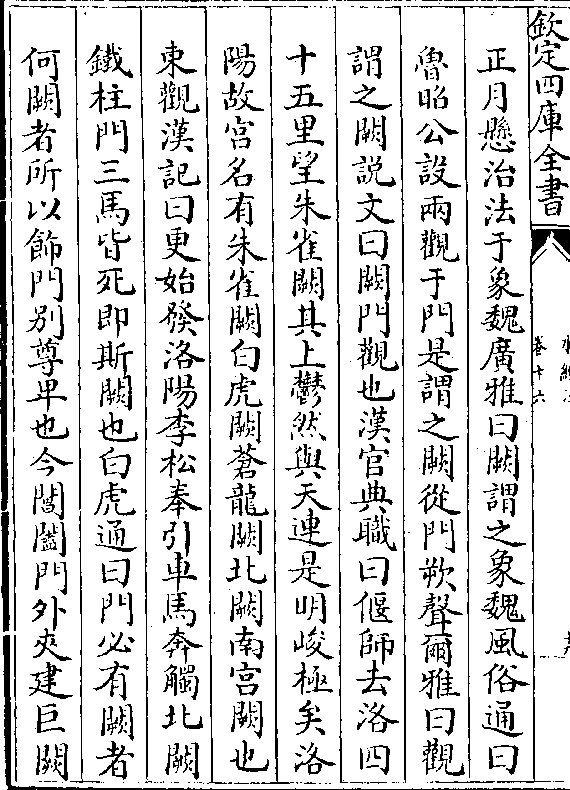 欽定四庫全書
卷十六
正月懸治法于象魏廣雅曰闕謂之象魏風俗通曰
魯昭公設兩觀于門是謂之闕從門欮聲爾雅曰觀
謂之闕説文曰闕門觀也漢官典職曰偃師去洛四
十五里望朱雀闕其上鬱然與天連是明峻極矣洛
陽故宫名有朱雀闕白虎闕蒼龍闕北闕南宫闕也
東觀漢記曰更始發洛陽李松奉引車馬奔觸北闕
鐵柱門三馬皆死即斯闕也白虎通曰門必有闕者
何闕者所以飾門别尊卑也今閶闔門外夾建巨闕